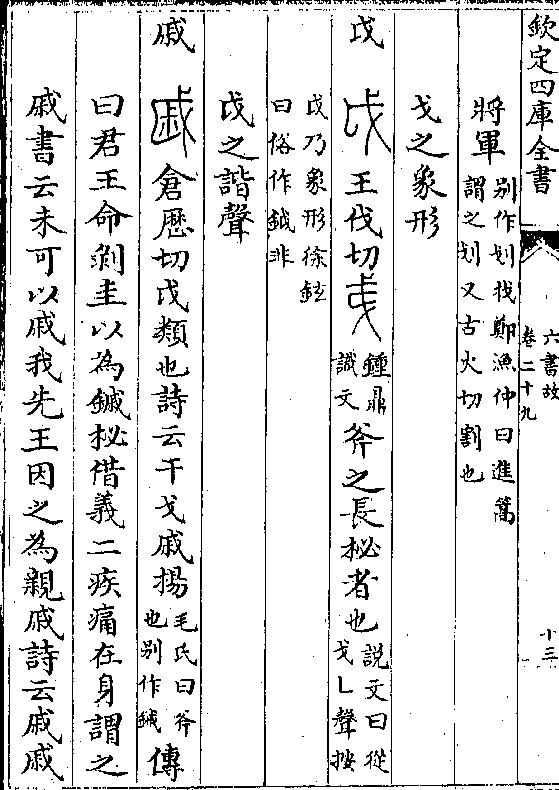 欽定四庫全書
六書故
卷二十九
十三
將軍 别作划找鄭漁仲曰進篙
謂之划又古火切割也
戈之象形
戉 王伐切 鍾鼎
識文 斧之長柲者也 説文曰從
戈𠄌聲按
戉乃象形徐鉉
曰俗作鉞非
戉之諧聲
戚 倉歴切戉類也詩云干戈戚揚 毛氏曰斧
也别作鏚 傳
曰君王命剝圭以為鏚柲借義二疾痛在身謂之
戚書云未可以戚我先王因之為親戚詩云戚戚